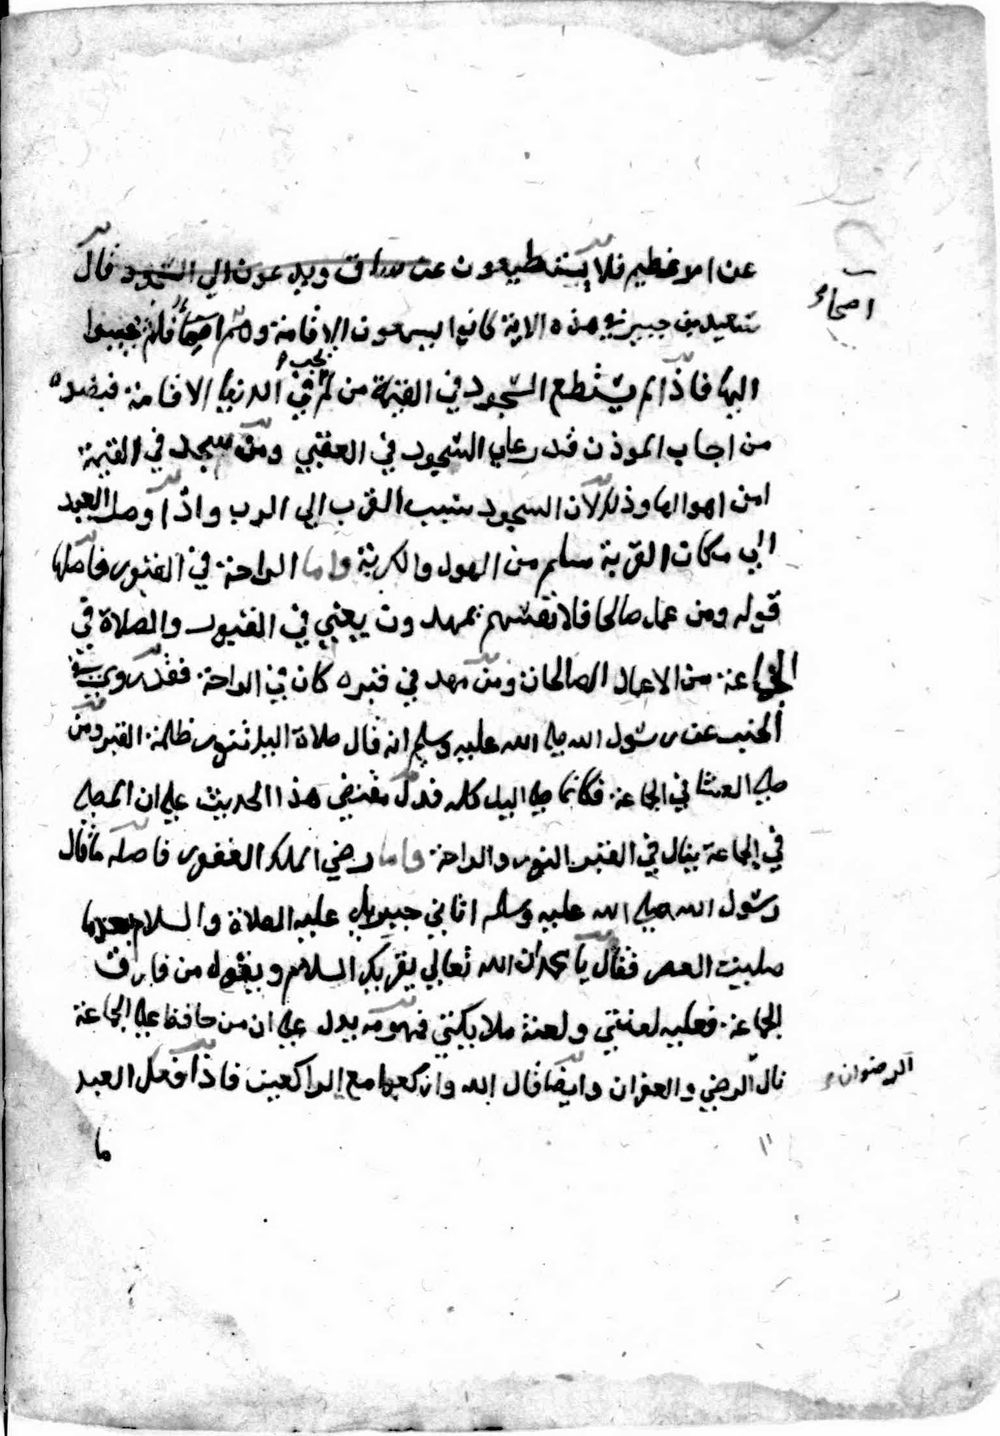 عن امر عظيم فلا يستطيعون عن ساق ويدعون الي السجود قال
سعيد بن جبير في هذه الاية كانوا يسمعون الاقامة وهم اصحاء فلم يجيبوا
اصحاء
اليها فاذا لم يستطع السجود في القيمة من لم يجب في الدنيا الاقامة فبضده
من اجاب الموذن قدر علي السجود في العقبي ومن سجد في القيمة
امن اهوالها وذلك لان السجود سبب القرب الي الرب واذا وصل العبد
الي مكان القربة سلم من الهول والكربة واما الراحة في القبور فاصلها
قوله ومن عمل صالحا فلانفسهم يمهدون يعني في القبور والصلاة في
الجماعة من الاعمال الصالحات ومن مهد في قبره كان في الراحة فقد روي في
الخبر عن رسول الله صلي الله عليه وسلم انه قال صلاة الليل تنور ظلمة القبر ومن
صلي العشا في الجماعة فكانما صلي الليل كله فدل مقتضي هذا الحديث علي ان المصلي
في الجماعة ينال في القبر النور والراحة واما رضي الملك الغفور فاصله ما قال
رسول الله صلي الله عليه وسلم اتاني جبريل عليه الصلاة والسلام بعدما
صليت العصر فقال يا محمد ان الله تعالي يقريك السلام ويقول من فارق
الجماعة فعليه لعنتي ولعنة ملايكتي فمفهومه يدل علي ان من حافظ علي الجماعة
نال الرضي والغفران وايضا قال الله واركعوا مع الراكعين فاذا فعل العبد
الرضوان
ما